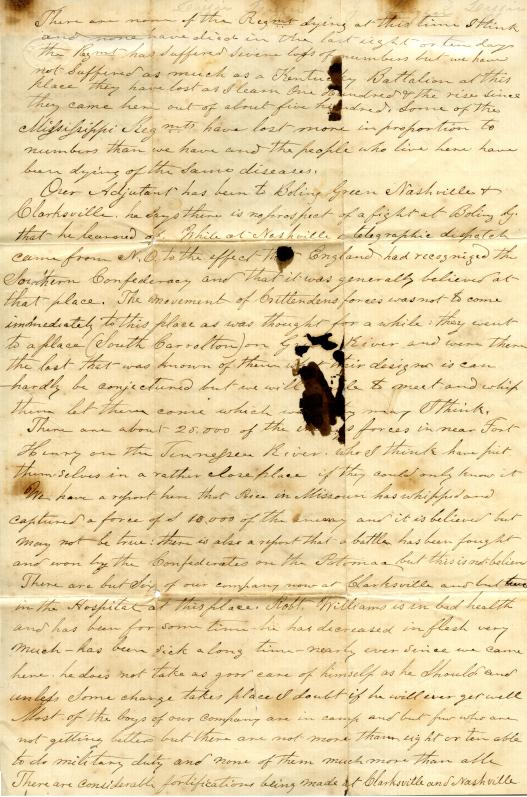 There are none of the Regmt dying at this time I think
and none have died in the last eight or ten day
the Regmt has suffered sivere loss of numbers but we have
not suffered as much as a Kentucky Battalion at this
place they have lost as I learn One hundred & the rise since
they came here out of about five hundred. Some of the
Missisippi Regmts have lost more in proportion to
numbers than we have and the people who live here have
been dying of the same diseases.
Our Adjutant has been to Boling Green Nashville &
Clarksville. he says there is no prospect of a fight at Boling G.
that he learned of. While at Nashville a telegraphic dispatch
came from N.O. to the effect that England had recognized the
Southern Confederacy and that it was generally believed at
that place. The movement of Crittendens forces was not to come
immediately to this place as was thought for a while: they went
to a place (South Carrolton) on River and were there
the last that was known of them designs is can
hardly be conjectured but we will to meet and whip
them let them come which may I think.
There are about 25.000 of the forces in near Fort
Henry on the Tennessee River. who I think have put
themselves in a rather close place if they could only know it
We have a report here that Rice in Missouri has whipped and
captured a force of 10.000 of the enemy and it is believed but
may not be true: there is also a report that a battle has been fought
and won by the Confederates on the Potomac but this is not believ
There are but Six of our company now at Clarksville and but
in the Hospital at this place. Robt. Williams is in bad health
and has been for some time. he has decreased in flesh very
much - has been sick a long time - nearly ever since we came
here. he does not take as good care of himself as he Should and
unless Some change takes place I doubt if he will ever get well
Most of the boys of our company are in camp and but few who are
not getting better but there are not more than eight or ten able
to do military duty and none of them much more than able
There are considerable fortifications being made at Clarksville and Nashville